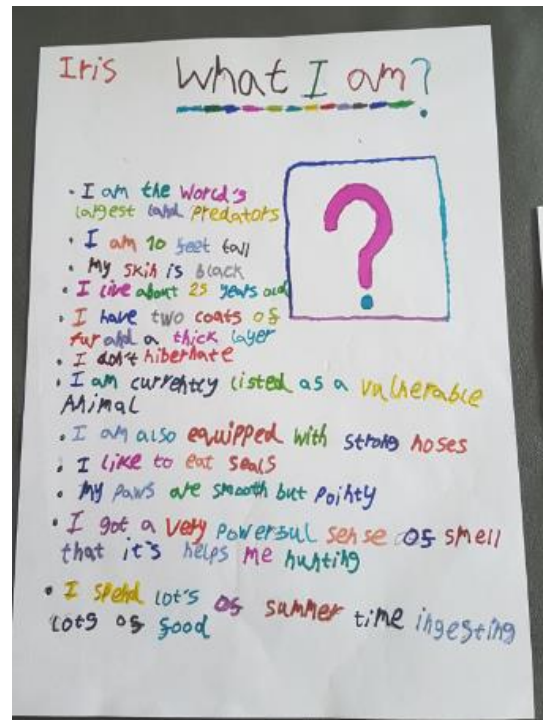 Iris
What I am?
• I am the World's
largest land predators
• I am 10 feet tall
• My skin is black
• I live about 25 years old
• I have two coats of
fur and a thick layer
• I don't hibernate
• I am currently listed as a vulnerable
Animal
• I am also equipped with strong noses
• I like to eat seals
• My paws are smooth but pointy
• I got a very powerful sense of smell
that it's helps me hunting
• I spend lot's of summer time ingesting
lots of food
?